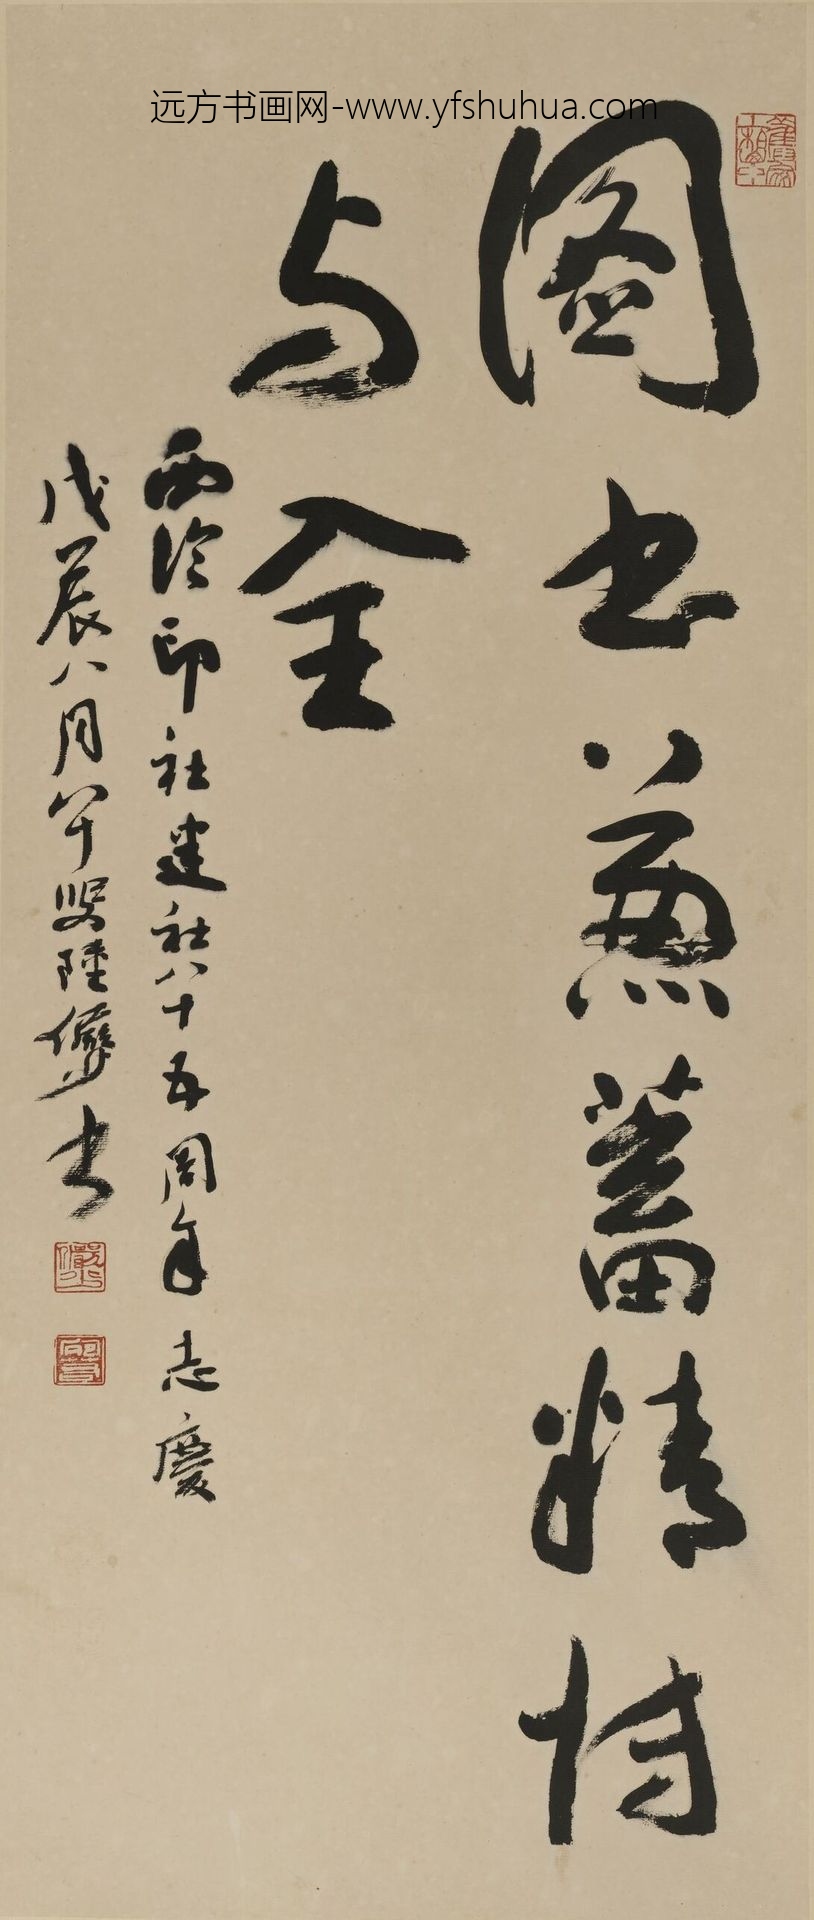 远方书画网-www.yfshuhua.com
图书兼蓄精博
与全
西泠印社建社八十五周年志庆
戊辰八月八十叟陆俨少书